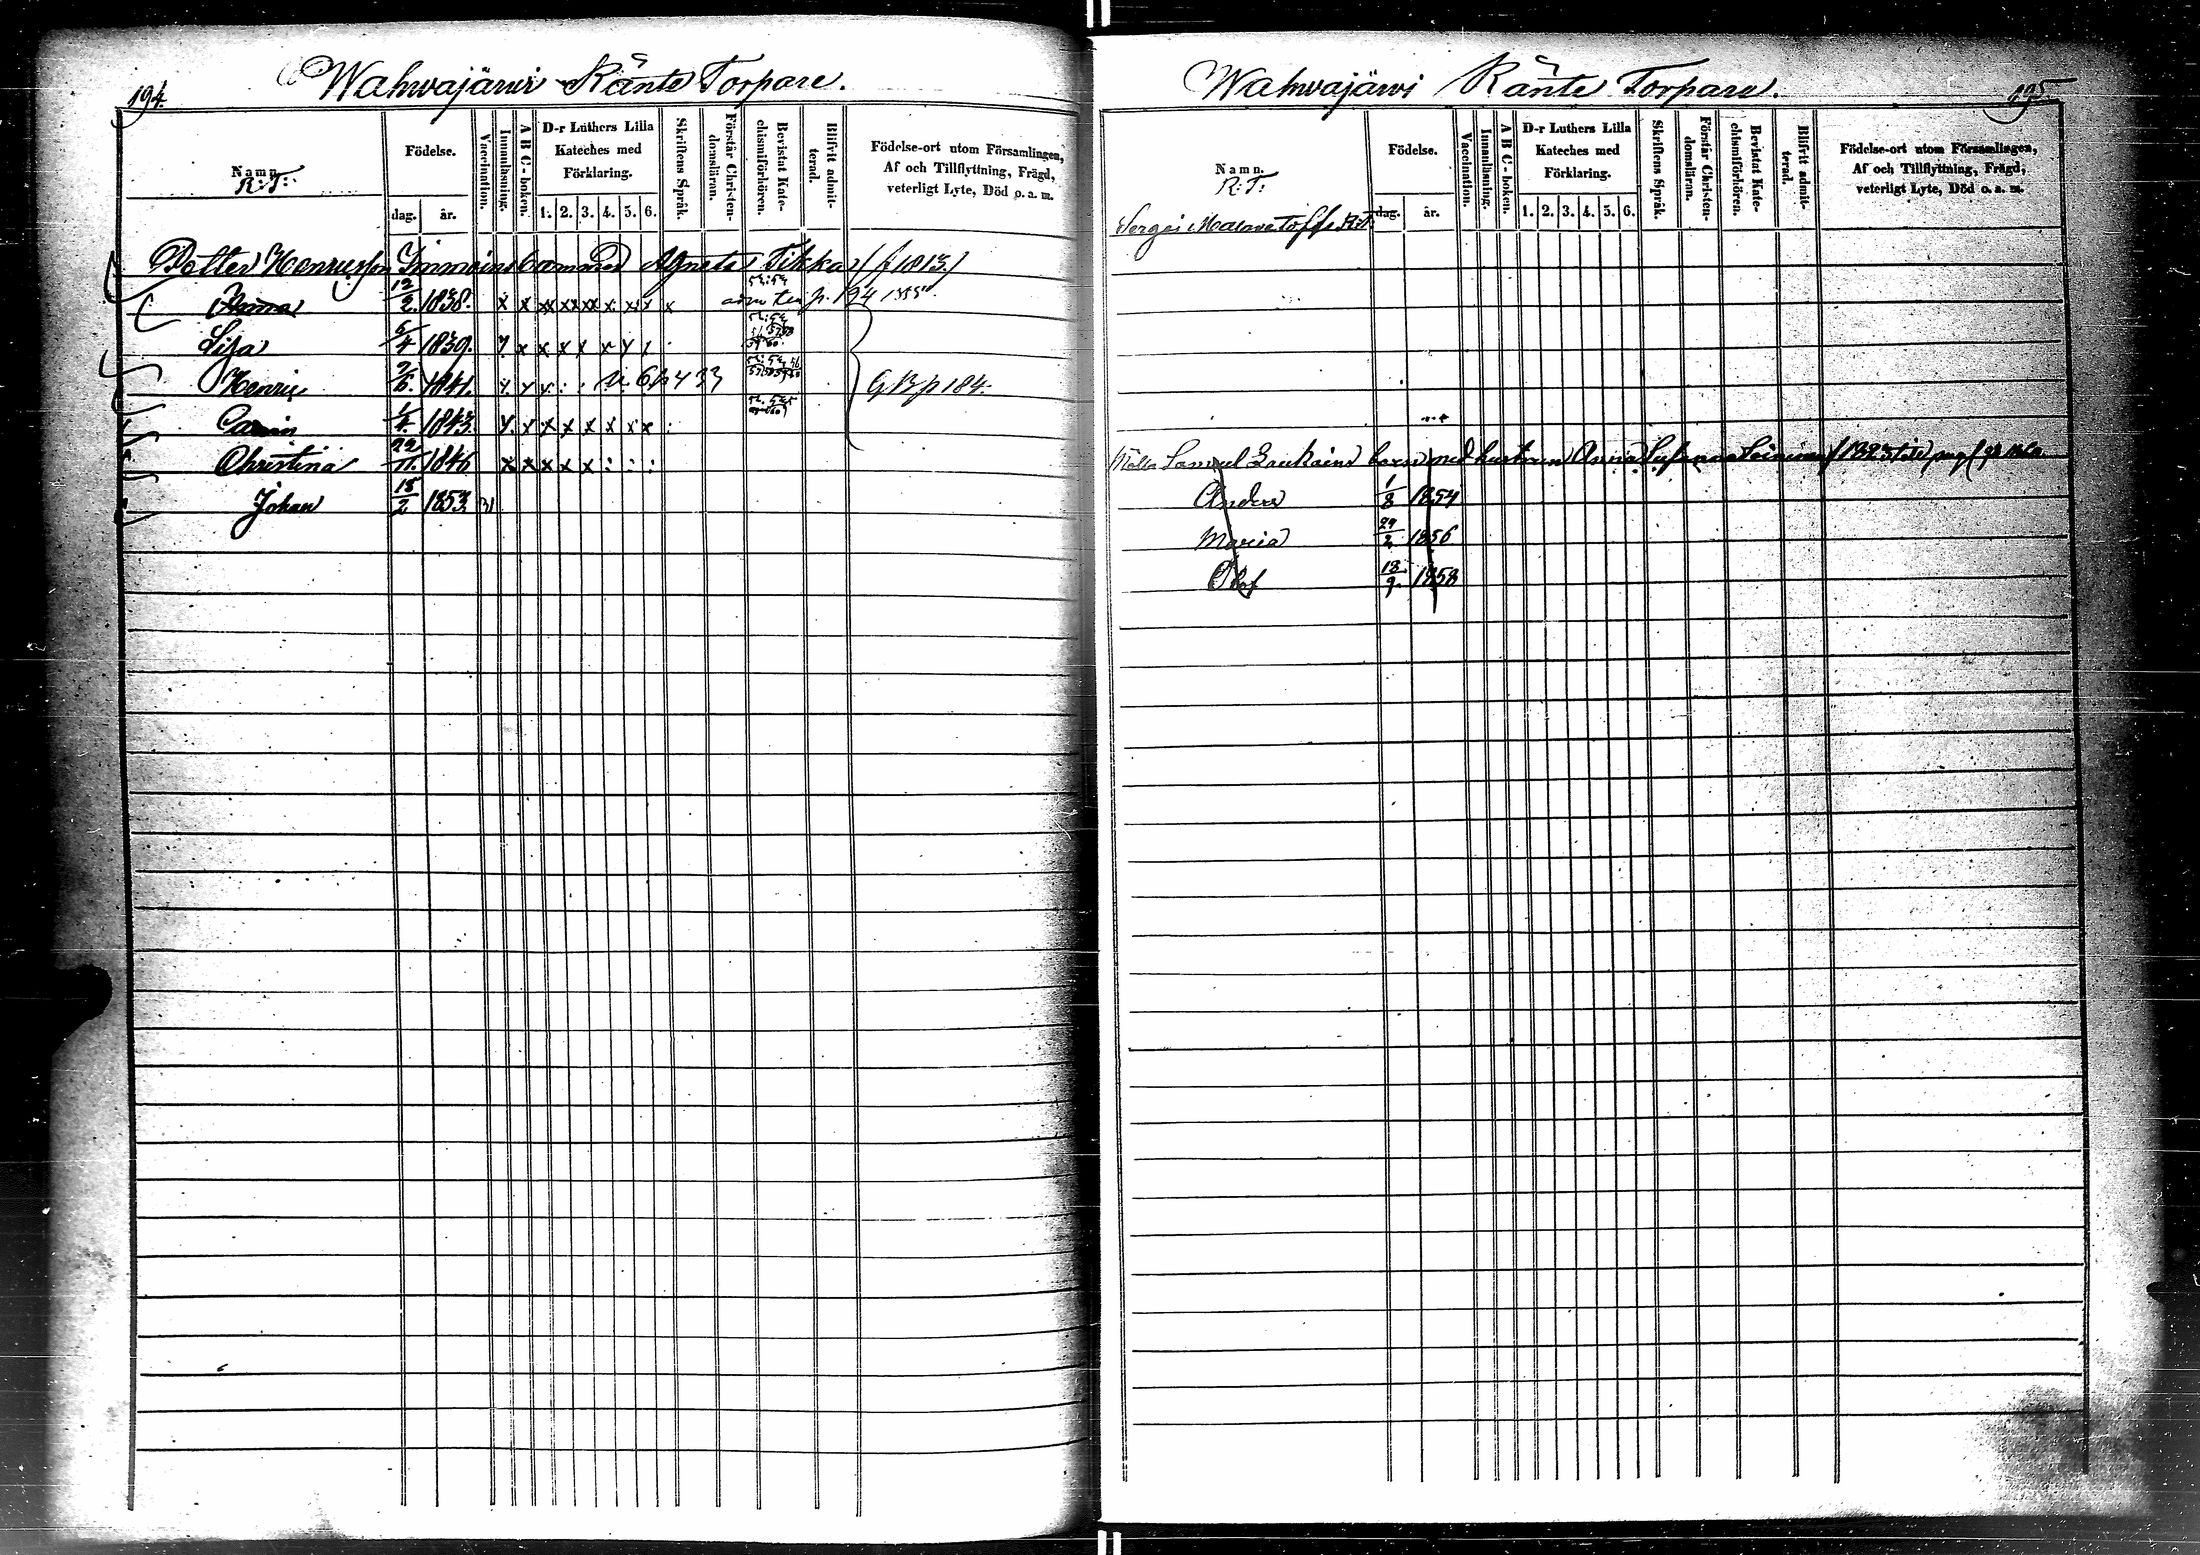 194.
Wahwajärwi Ränte Torpare.
Namn.
R:T:
Födelse.
dag. år.
Vaccination.
Innanläsning.
A B C-boken.
D-r Luthers Lilla
Kateches med
Förklaring.
1. 2. 3. 4. 5. 6.
Skriftens Språk.
Förstår Christen-
domsläran.
Bevistat Kate-
chismiförhören.
Blifvit admit-
terad.
Födelse-ort utom Församlingen,
Af och Tillflyttning, Frägd,
veterligt Lyte, Död o. a. m.
Petter Henricsson Immoins barn med Agneta Tikka (f 1813.)
Anna 12/2 1838. x x xx xx xx x x x x p. 194
Lisa 5/4 1839. x x x x x x
Henric 2/6 1841. 6 p 433 p 184.
Carin 1/4 1843. x x x x x x x
Christina 22/11 1846 x x x x x : : :
Johan 18/2 1853
195
Wahwajärwi Ränte Torpare.
Namn.
R:T:
Födelse.
dag. år.
Vaccination.
Innanläsning.
A B C-boken.
D-r Luthers Lilla
Kateches med
Förklaring.
1. 2. 3. 4. 5. 6.
Skriftens Språk.
Förstår Christen-
domsläran.
Bevistat Kate-
chismiförhören.
Blifvit admit-
terad.
Födelse-ort utom Församlingen,
Af och Tillflyttning, Frägd,
veterligt Lyte, Död o. a. m.
Sergei R:T:
Samuel barn med hustrun Anna 1823
Anders 1/8 1854
Maria 29/2 1856
Olof 18/9 1858